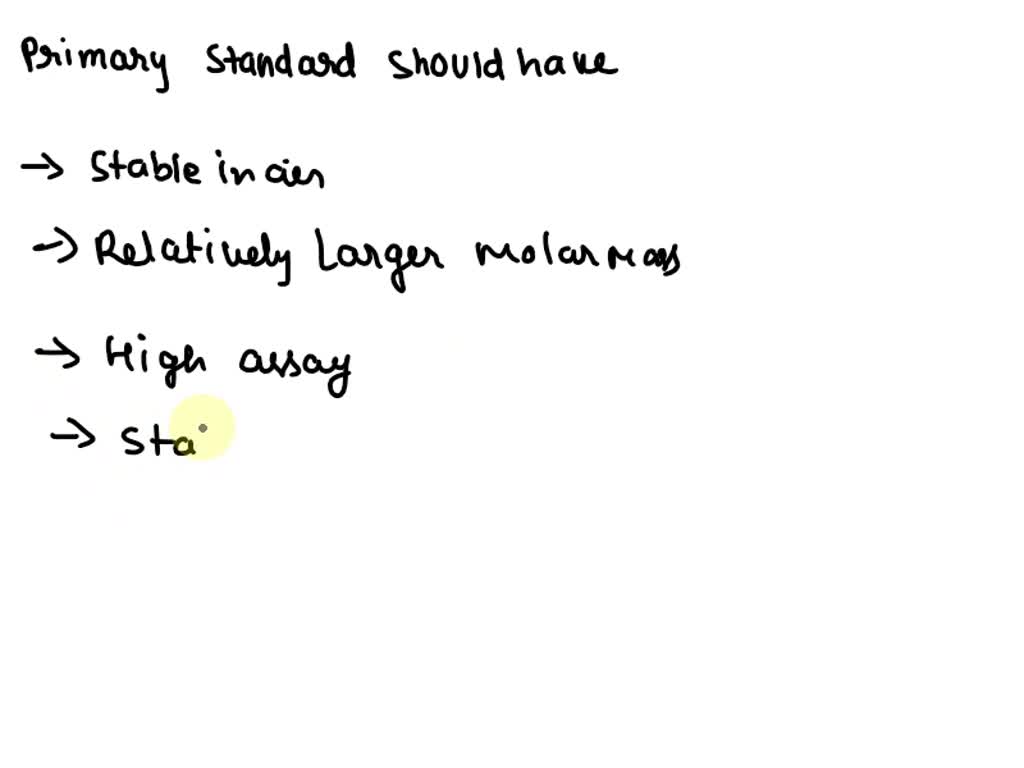 Primary Standard Should have
→ Stable in air
→ Relatively Larger molar mass
→ High assay
→ Sta